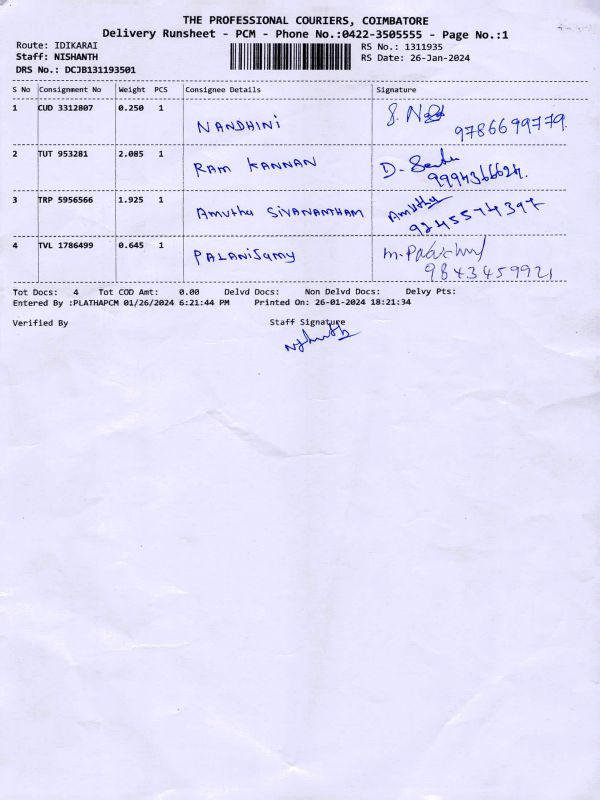 THE PROFESSIONAL COURIERS, COIMBATORE
Delivery Runsheet - PCM - Phone No.:0422-3505555 - Page No.:1
Route: IDIKARAI RS No.: 1311935
Staff: NISHANTH RS Date: 26-Jan-2024
DRS No.: DCJB131193501
S No Consignment No Weight PCS Consignee Details Signature
1 CUD 3312807 0.250 1 NANDHINI
9786699779.
2 TUT 953281 2.085 1 RAM KANNAN D.
9994366624.
3 TRP 5956566 1.925 1 Amutha SIVANANTHAM Amutha
9245574397
4 TVL 1786499 0.645 1 PALANISamy
9843459921
Tot Docs: 4 Tot COD Amt: 0.00 Delvd Docs: Non Delvd Docs: Delvy Pts:
Entered By :PLATHAPCM 01/26/2024 6:21:44 PM Printed On: 26-01-2024 18:21:34
Verified By Staff Signature